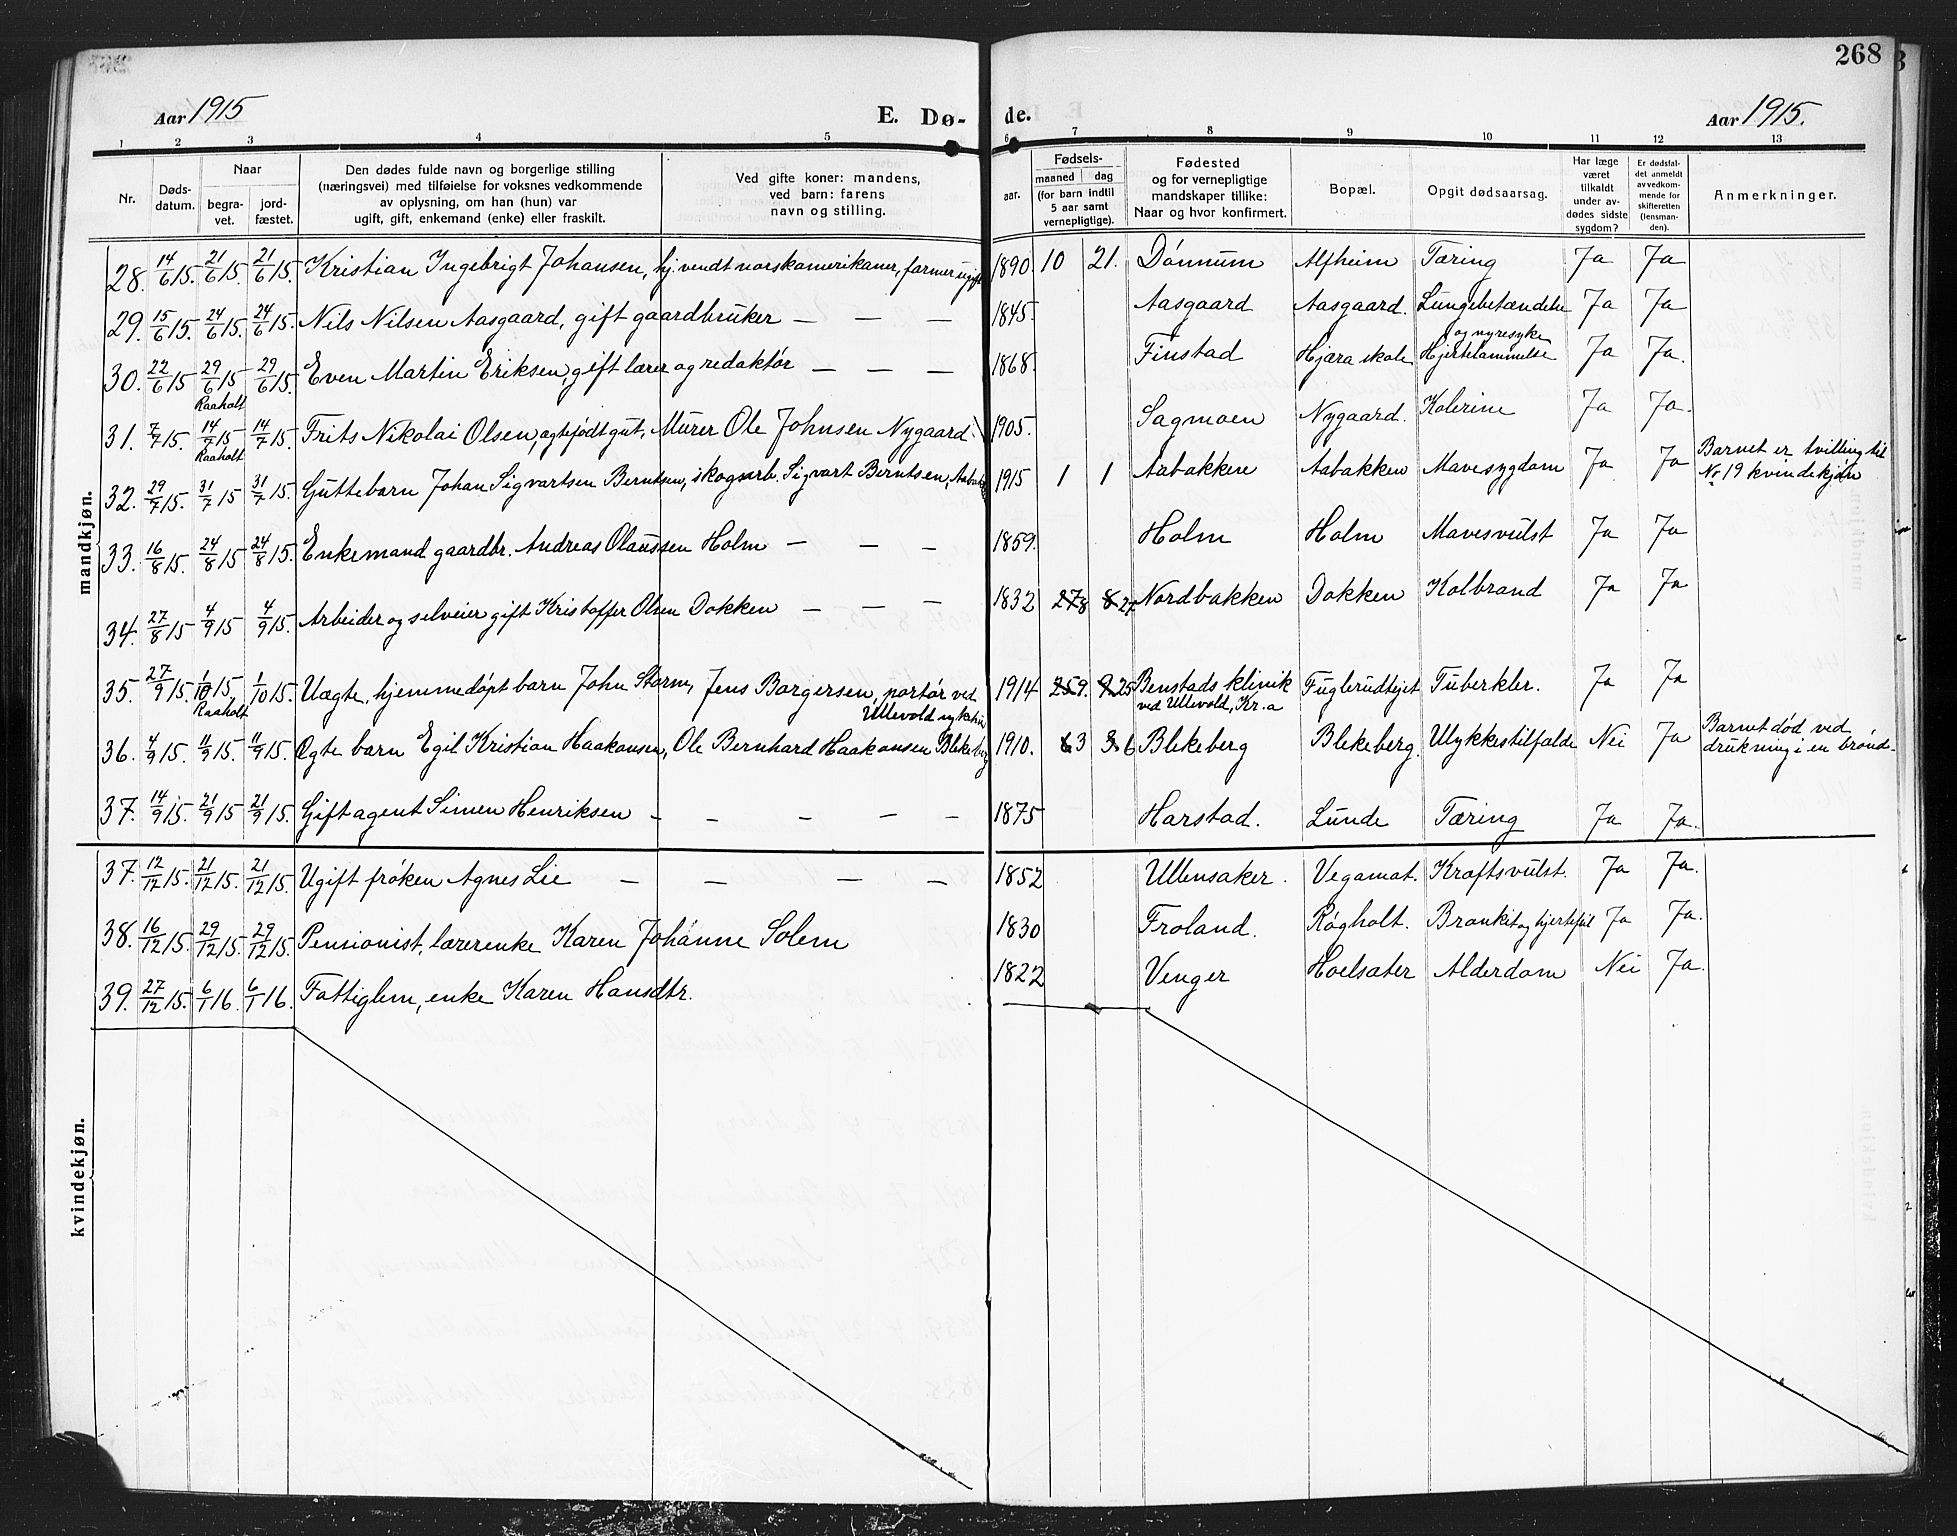 268
Aar 1915 E. Dø- de. Aar 1915.
1 2 3 4 5 6 7 8 9 10 11 12 13
Nr. Døds-datum. Naar begra-vet. jord-fæstet. Den dødes fulde navn og borgerlige stilling (næringsvei) med tilføielse for voksnes vedkommende av oplysning, om han (hun) var ugift, gift, enkemand (enke) eller fraskilt. Ved gifte koner: mandens, ved barn: farens navn og stilling. Fødsels- aar. maaned dag (for barn indtil 5 aar samt vernepligtige). Fødested og for vernepligtige mandskaper tillike: Naar og hvor konfirmert. Bopæl. Opgit dødsaarsag. Har læge været tilkaldt under av-dødes sidste sygdom? Er dødsfal-det anmeldt av vedkom-mende for skifteretten (lensman-den). Anmerkninger.
mandkjøn.
28. 14/6 15. 21/6 15. 21/6 15. Kristian Ingebrigt Johansen, hj.vendt norskamerikaner, farmer ugift 1890. 10 21. Dønnum Alfheim Tæring Ja Ja
29. 15/6 15. 24/6 15. 24/6 15. Nils Nilsen Aasgaard, gift gaardbruker — — — 1845. Aasgaard Aasgaard. Lungebetændelse og nyresyke Ja Ja
30. 22/6 15 29/6 15 29/6 15. Even Martin Eriksen, gift lærer og redaktør — — — 1868. Finstad Hjæra skole Hjertelammelse Ja Ja.
31. 7/7 15. Raaholt 14/7 15 14/7 15. Frits Nikolai Olsen, ægtefødt gut, Murer Ole Johnsen Nygaard. 1905. Sagmoen Nygaard. Kolerine Ja Ja.
32. 29/7 15. Raaholt 31/7 15 31/7 15. Guttebarn Johan Sigvartsen Berntsen, skogsarb. Sigvart Berntsen, 1915 1 1 Aabakken Aabakken Mavesygdom Ja Ja Barnet er tvilling til Nr 19 kvindekjøn
33. 16/8 15. 24/8 15 24/8 15. Enkemand gaardbr. Andreas Olaussen Holm — — — 1859. Holm Holm Mavesvulst Ja Ja
34. 27/8 15 4/9 15 4/9 15. Arbeider og selveier gift Kristoffer Olsen Dokken — — — 1832 27 8 8 27 Nordbakken Dokken Kolbrand Ja Ja
35. 27/9 15. 1/10 15, 1/10 15. Uægte, hjemmedøpt barn John Storm, Jens Borgersen, portør ved Ullevold sykehus 1914 25 9. 9. 25 Benstads klinik ved Ullevold, Kr.a Fuglerudhejet Tuberkler. Ja Ja
36. 4/9 15. Raaholt 11/9 15. 11/9 15. Ægte barn Egil Kristian Haakonsen, Ole Bernhard Haakonsen Blekeberg 1910. 6 3 3 6 Blekeberg Blekeberg. Ulykkestilfælde Nei Ja Barnet død ved drukning i en brønd.
37. 14/9 15. 21/9 15 21/9 15. Gift agent Simen Henriksen — — — — — 1875 Harstad. Lunde Tæring Ja Ja.
kvindekjøn.
37. 12/12 15. 21/12 15. 21/12 15. Ugift frøken Agnes Lie — — — — 1852 Ullensaker. Vegamot. Kræftsvulst. Ja Ja.
38. 16/12 15. 29/12 15. 29/12 15. Pensionist, lærerenke Karen Johanne Solem 1830 Froland. Røgholt. Bronkit og hjertefeil Ja Ja.
39. 27/12 15. 6/1 16. 6/1 16. Fattiglem, enke Karen Hansdtr. 1822 Venger Hoelsæter Alderdom Nei Ja.